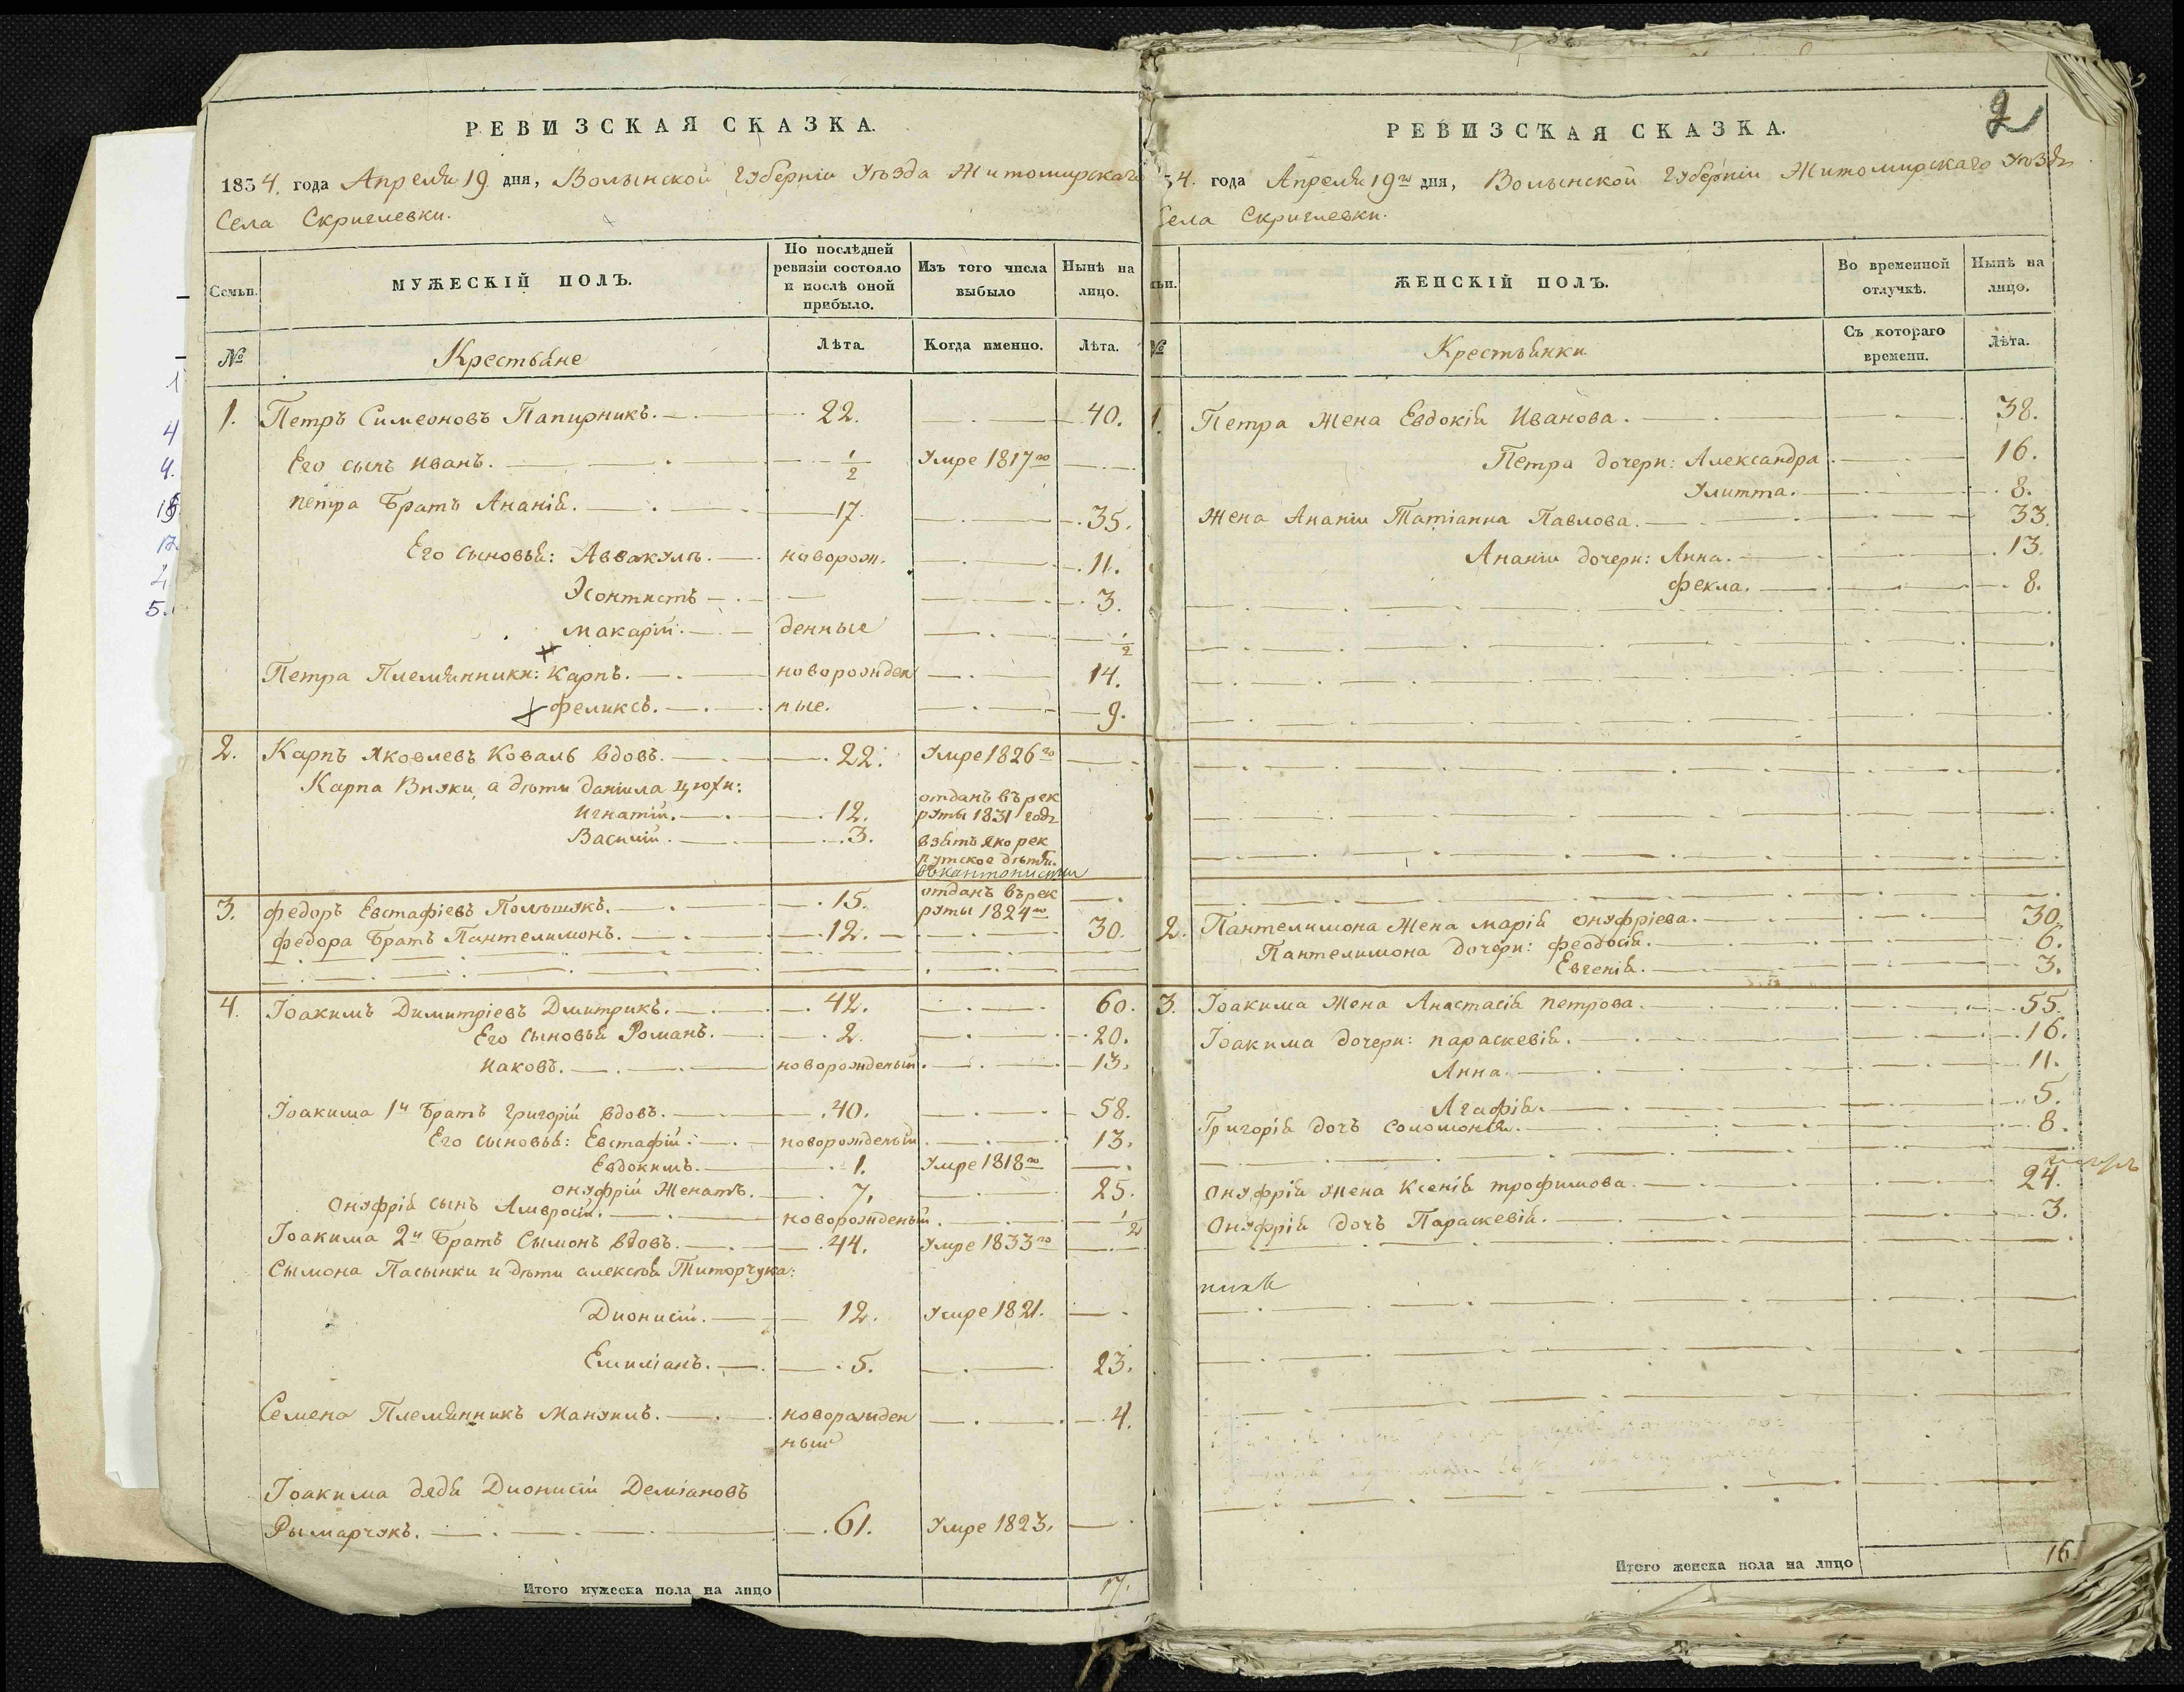 РЕВИЗСКАЯ СКАЗКА.
1834. года Апреля 19 дня, Волынской Губерніи Уѣзда Житомирскаго
Села Скриглевки.
Семьи.
МУЖЕСКІЙ ПОЛЪ.
По послѣдней ревизіи состояло и послѣ оной прибыло.
Изъ того числа выбыло
Нынѣ на лицо.
№
Крестьяне
Лѣта.
Когда именно.
Лѣта.
1. Петръ Симеоновъ Папирникъ. 22. 40.
Его сынъ Иванъ. 1/2 Умре 1817го
Петра Братъ Ананія. 17. 35.
Его сыновья: Аввакумъ. новорож. 11.
3.
Макарій. денные 1/2
Петра Племянники: Карпъ. новорожден 14.
Феликсъ. ные. 9.
2. Карпъ Яковлевъ Коваль вдовъ. 22. Умре 1826го
Карпа Внуки, а дѣти Даніила
Игнатій. 12. отданъ въ рек
руты 1831 года
Василій. 3. взятъ яко рек
рутское дѣтя.
въ кантонисты
3. Федоръ Евстафіевъ 15. отданъ въ рек
руты 1824го
Федора Братъ Пантелимонъ. 12. 30.
4. Іоакимъ Димитріевъ Дмитрикъ. 42. 60.
Его сыновья Романъ. 2. 20.
Иаковъ. новорожденый. 13.
Іоакима 1й Братъ Григорій вдовъ. 40. 58.
Его сыновья: Евстафій. новорожденый. 13.
Евдокимъ. 1. Умре 1818го
Онуфрій Женатъ. 7. 25.
Онуфрія сынъ Амвросій. новорожденый. 1/2
Іоакима 2й Братъ Сымонъ вдовъ. 44. Умре 1833го
Сымона Пасынки и дѣти Алексѣя Титорчука:
Дионисій. 12. Умре 1821.
Емиліанъ. 5. 23.
Семена Племянникъ Мануилъ. новорожден 4.
ный
Іоакима дядя Дионисій Деміановъ
Рымарчукъ. 61. Умре 1823.
Итого мужеска пола на лицо 17.
2
РЕВИЗСКАЯ СКАЗКА.
34. года Апреля 19го дня, Волынской Губерніи Житомирскаго Уѣзда
Села Скриглевки.
ьи.
ЖЕНСКІЙ ПОЛЪ.
Во временной отлучкѣ.
Нынѣ на лицо.
№
Крестьянки
Съ котораго времени.
Лѣта.
1. Петра Жена Евдокія Иванова. 38.
Петра дочери: Александра 16.
Улитта. 8.
Жена Ананіи Татіанна Павлова. 33.
Ананіи дочери: Анна. 13.
Фекла. 8.
2. Пантелимона Жена Марія Онуфріева. 30.
Пантелимона дочери: Феодосія. 6.
Евгенія. 3.
3. Іоакима Жена Анастасія Петрова. 55.
Іоакима дочери: Параскевія. 16.
Анна. 11.
Агафія. 5.
Григорія дочъ Соломонія. 8.
Онуфрія Жена Ксенія Трофимова. 24.
Онуфрія дочъ Параскевія. 3.
Итого женска пола на лицо 16.